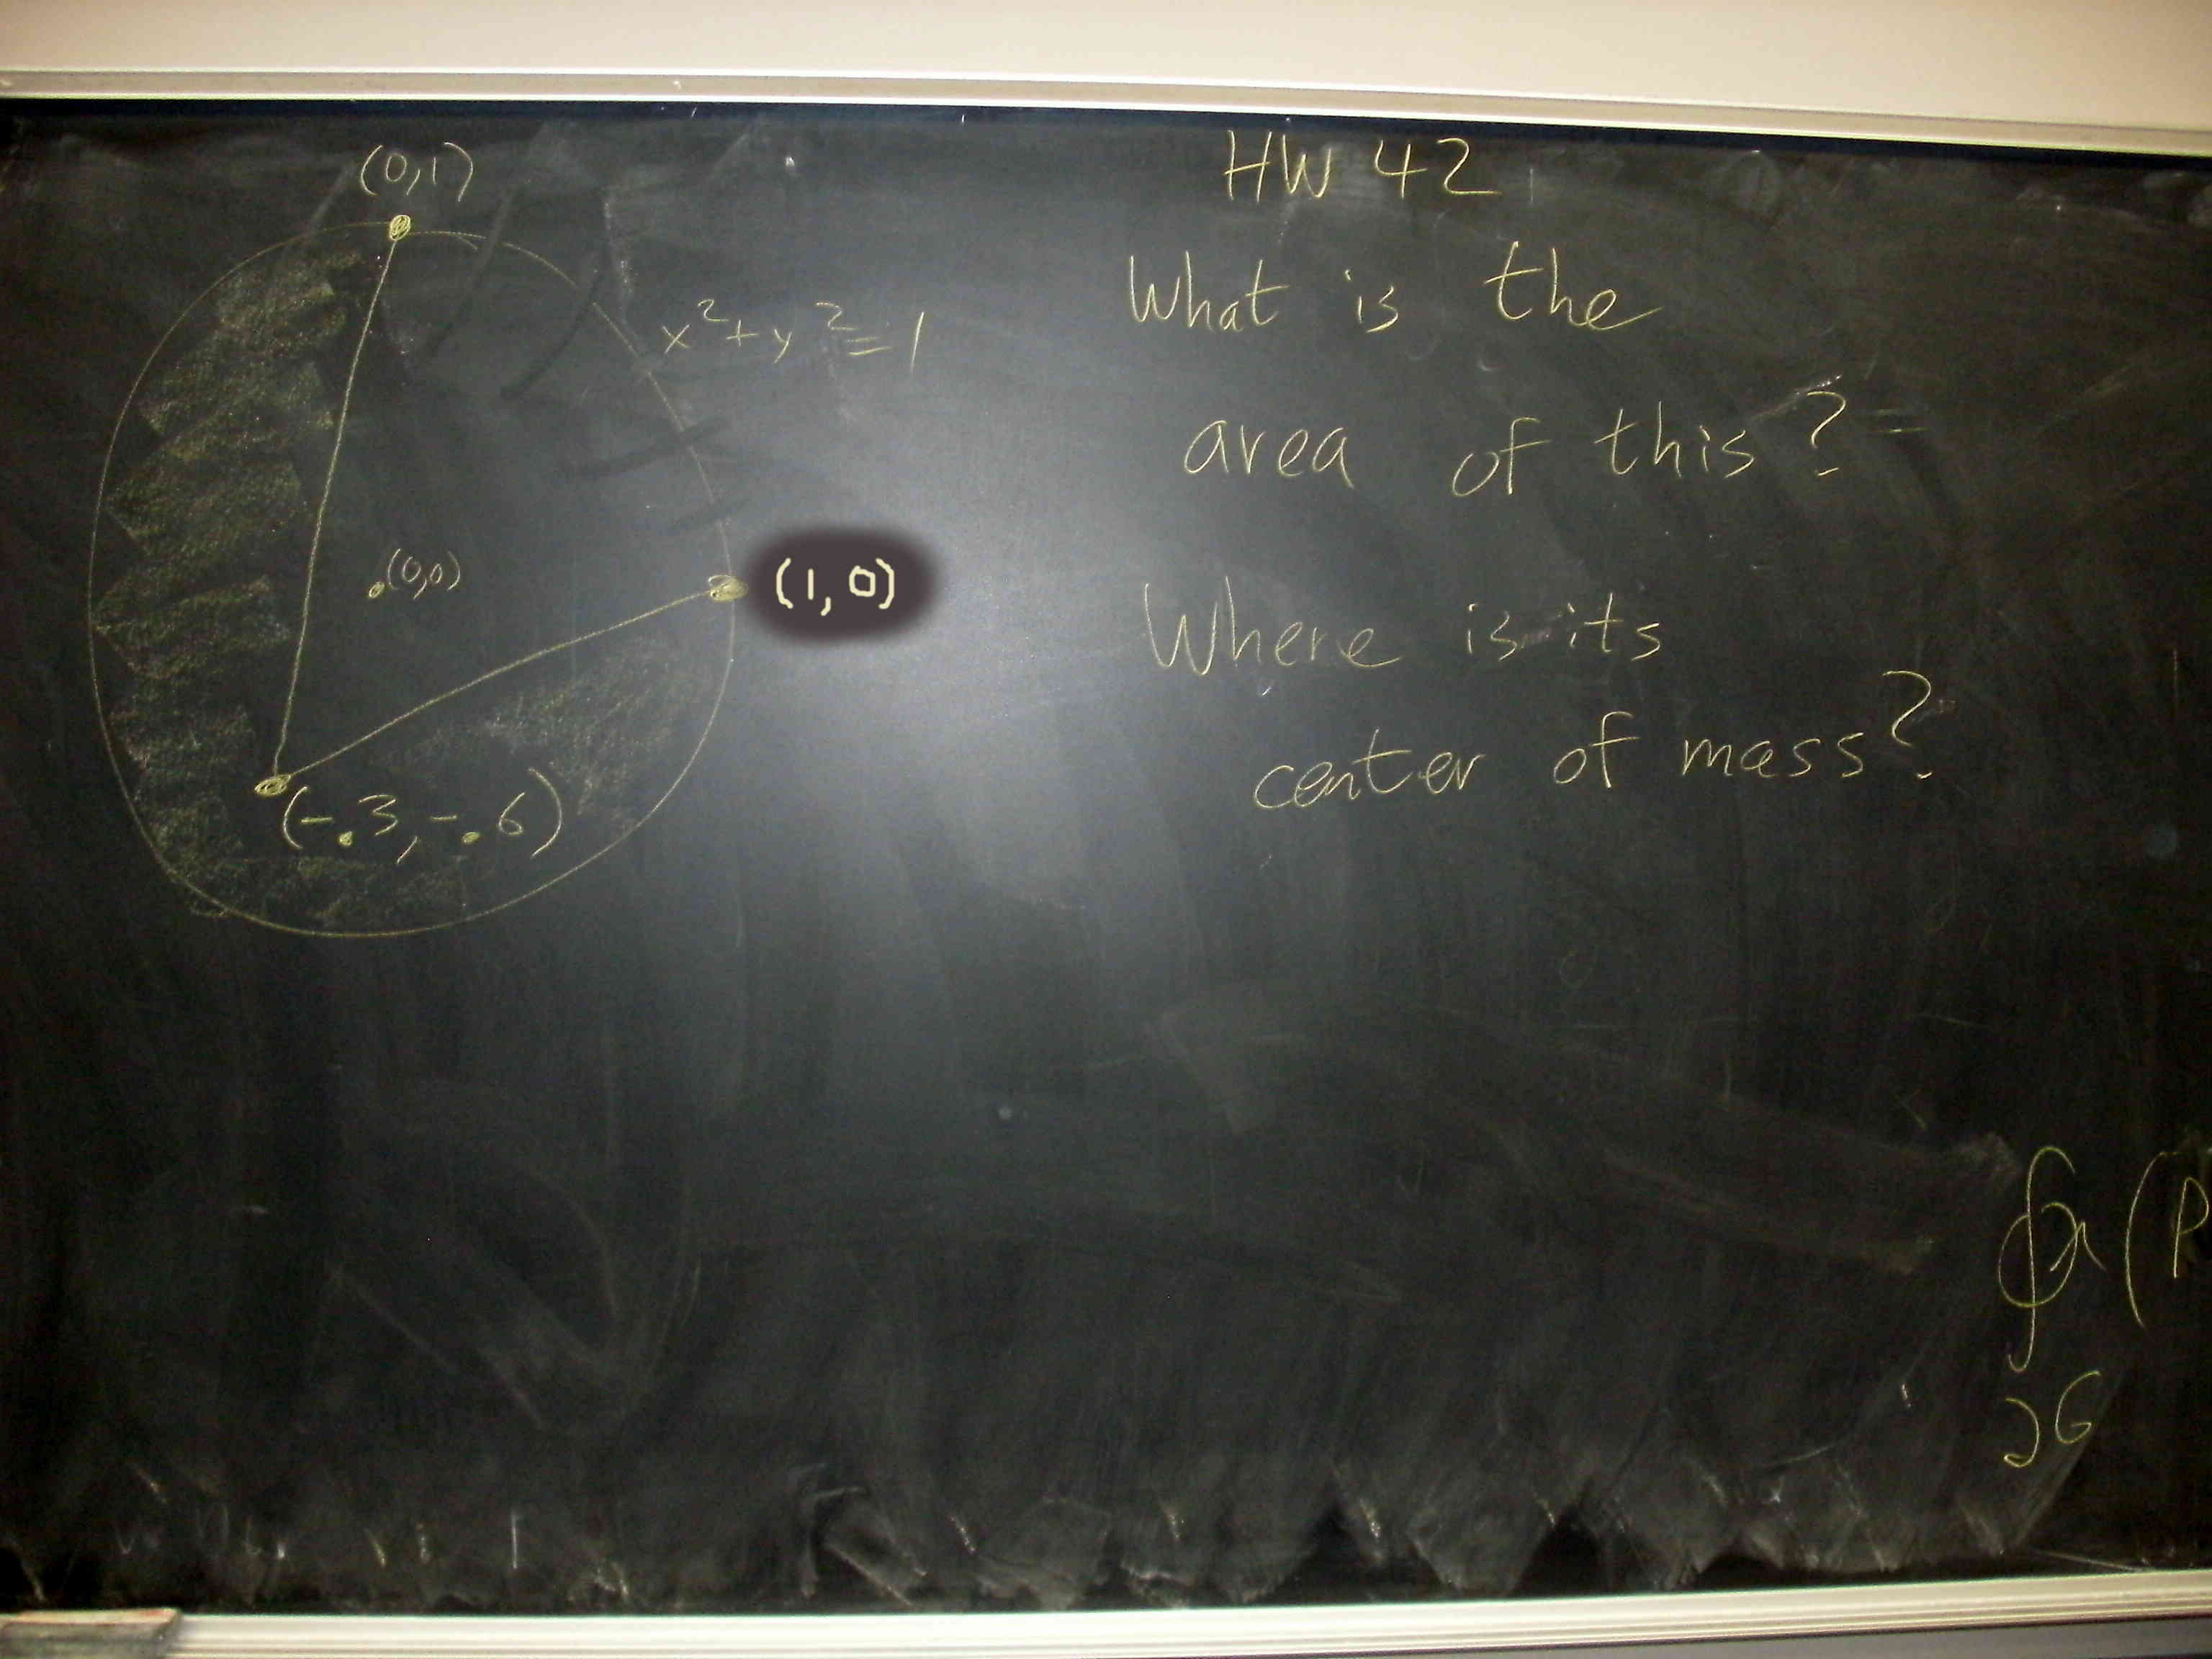 (0,1)
x²+y²=1
(0,0)
(1,0)
(-.3,-.6)
HW 42
What is the
area of this?
Where is its
center of mass?
∂G